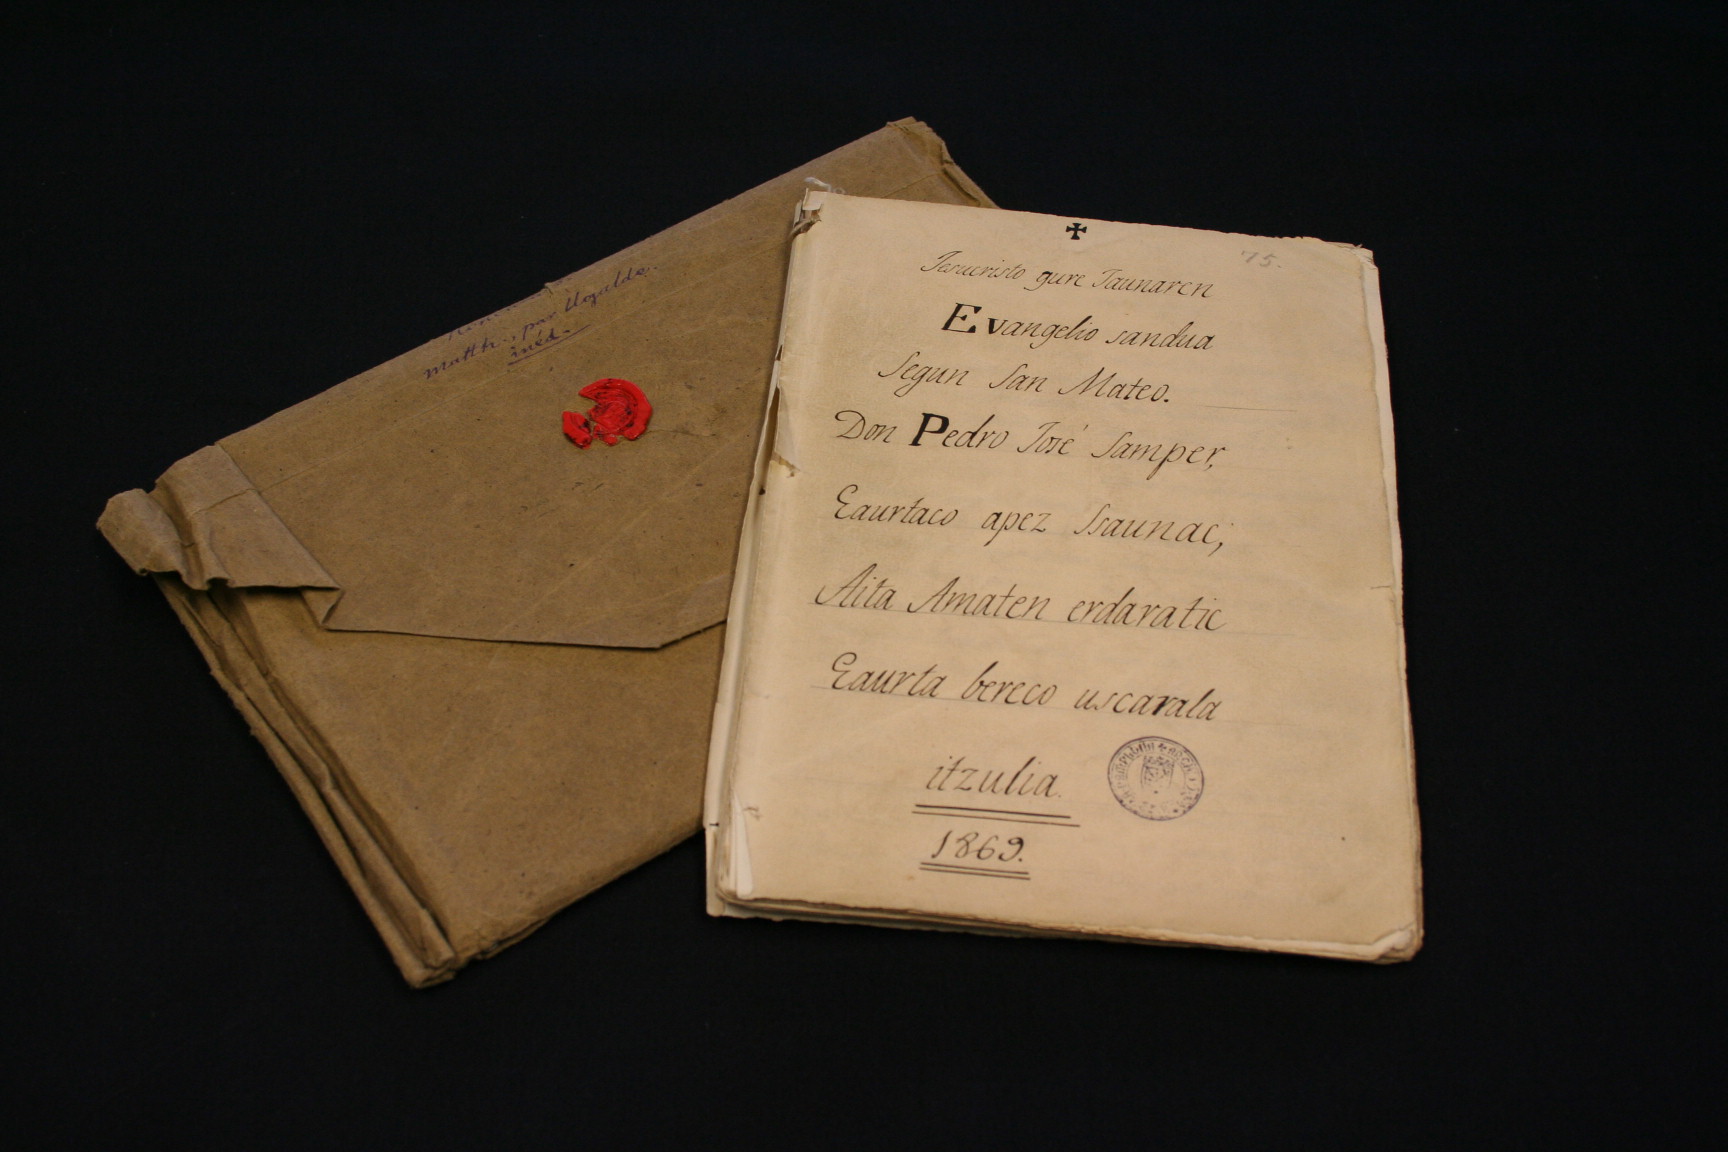 matth. par Ugalde.
inéd.
✠
75.
Jesucristo gure Jaunaren
Evangelio sandua
Segun San Mateo.
Don Pedro José Samper,
Eaurtaco apez Jsaunac,
Aita Amaten erdaratic
Eaurta bereco uscarala
itzulia.
1869.